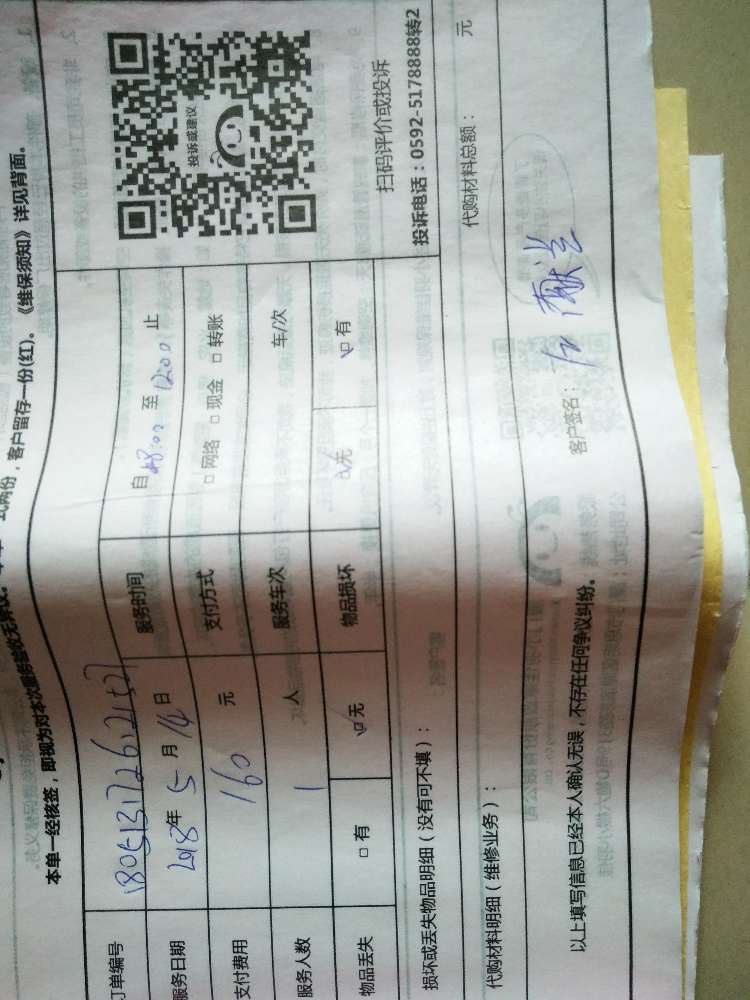 式两份，客户留存一份(红)。《维保须知》详见背面。
本单一经核签，即视为对本次服务验收无异议。
订单编号
服务日期 2018年 5 月 14 日 服务时间 自 8:00 至 12:00 止
支付费用 160 元 支付方式 □ 网络 □ 现金 □ 转账
服务人数 1 人 服务车次 车/次
物品丢失 □ 有 ☑ 无 物品损坏 ☑ 无 □ 有
投诉或建议
扫码评价或投诉
投诉电话：0592-5178888转2
损坏或丢失物品明细（没有可不填）：
代购材料明细（维修业务）： 代购材料总额： 元
以上填写信息已经本人确认无误，不存在任何争议纠纷。 客户签名：